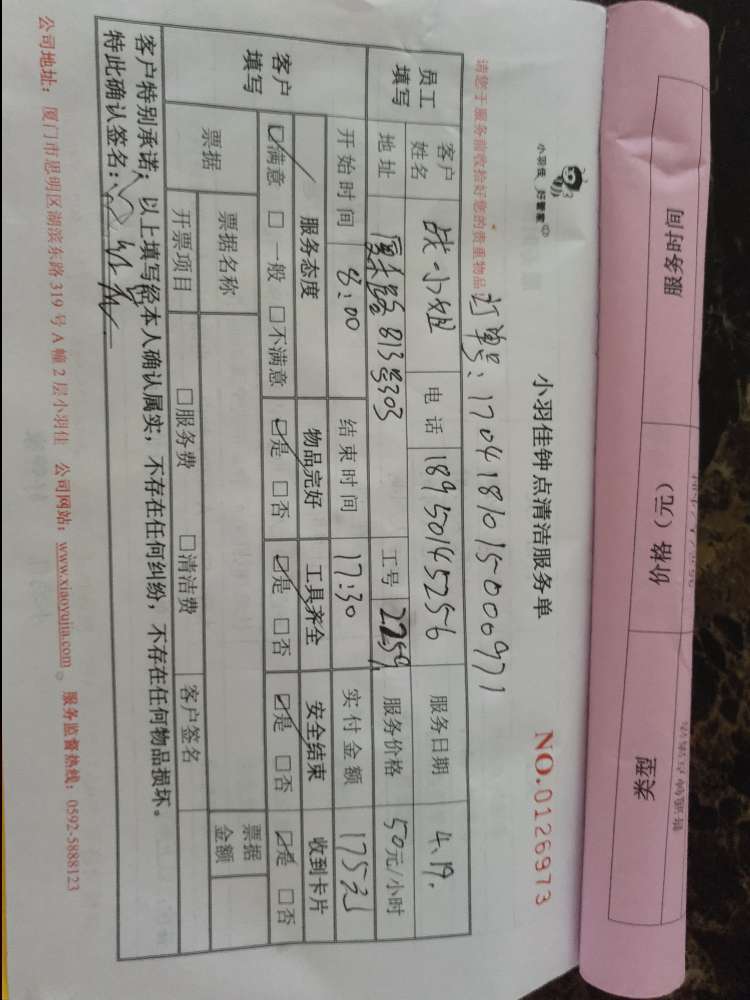 小羽佳 好管家
小羽佳钟点清洁服务单
NO.0126973
请您于服务前收拾好您的贵重物品!
订单号:170418101500097 1
员工填写
客户姓名 战小姐 电话 18950145256 服务日期 4.19.
地址 813号303 工号 服务价格 50元/小时
客户填写
开始时间 8:00 结束时间 17:30 实付金额
服务态度 物品完好 工具齐全 安全结束 收到卡片
☑满意 □一般 □不满意 ☑是 □否 ☑是 □否 ☑是 □否 ☑是 □否
票据 票据名称 票据金额
开票项目 □服务费 □清洁费 客户签名
客户特别承诺:以上填写经本人确认属实,不存在任何纠纷,不存在任何物品损坏。
特此确认签名:
公司地址:厦门市思明区湖滨东路319号A幢2层小羽佳 公司网站:www.xiaoyujia.com 服务监督热线:0592-5888123
服务时间 价格(元) 类型